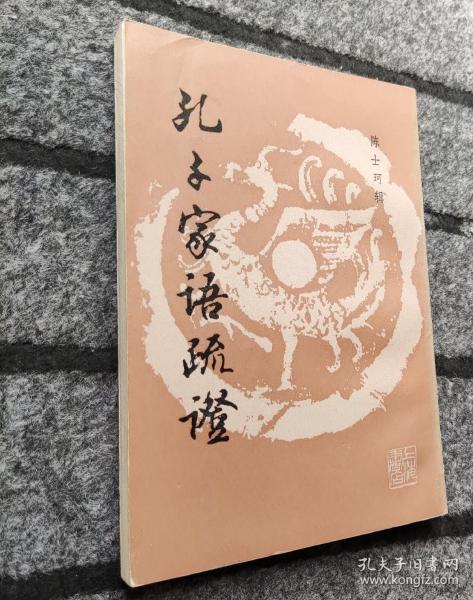 孔子家语疏證
陈士珂辑
上海書店
孔夫子旧书网
www.kongfz.com